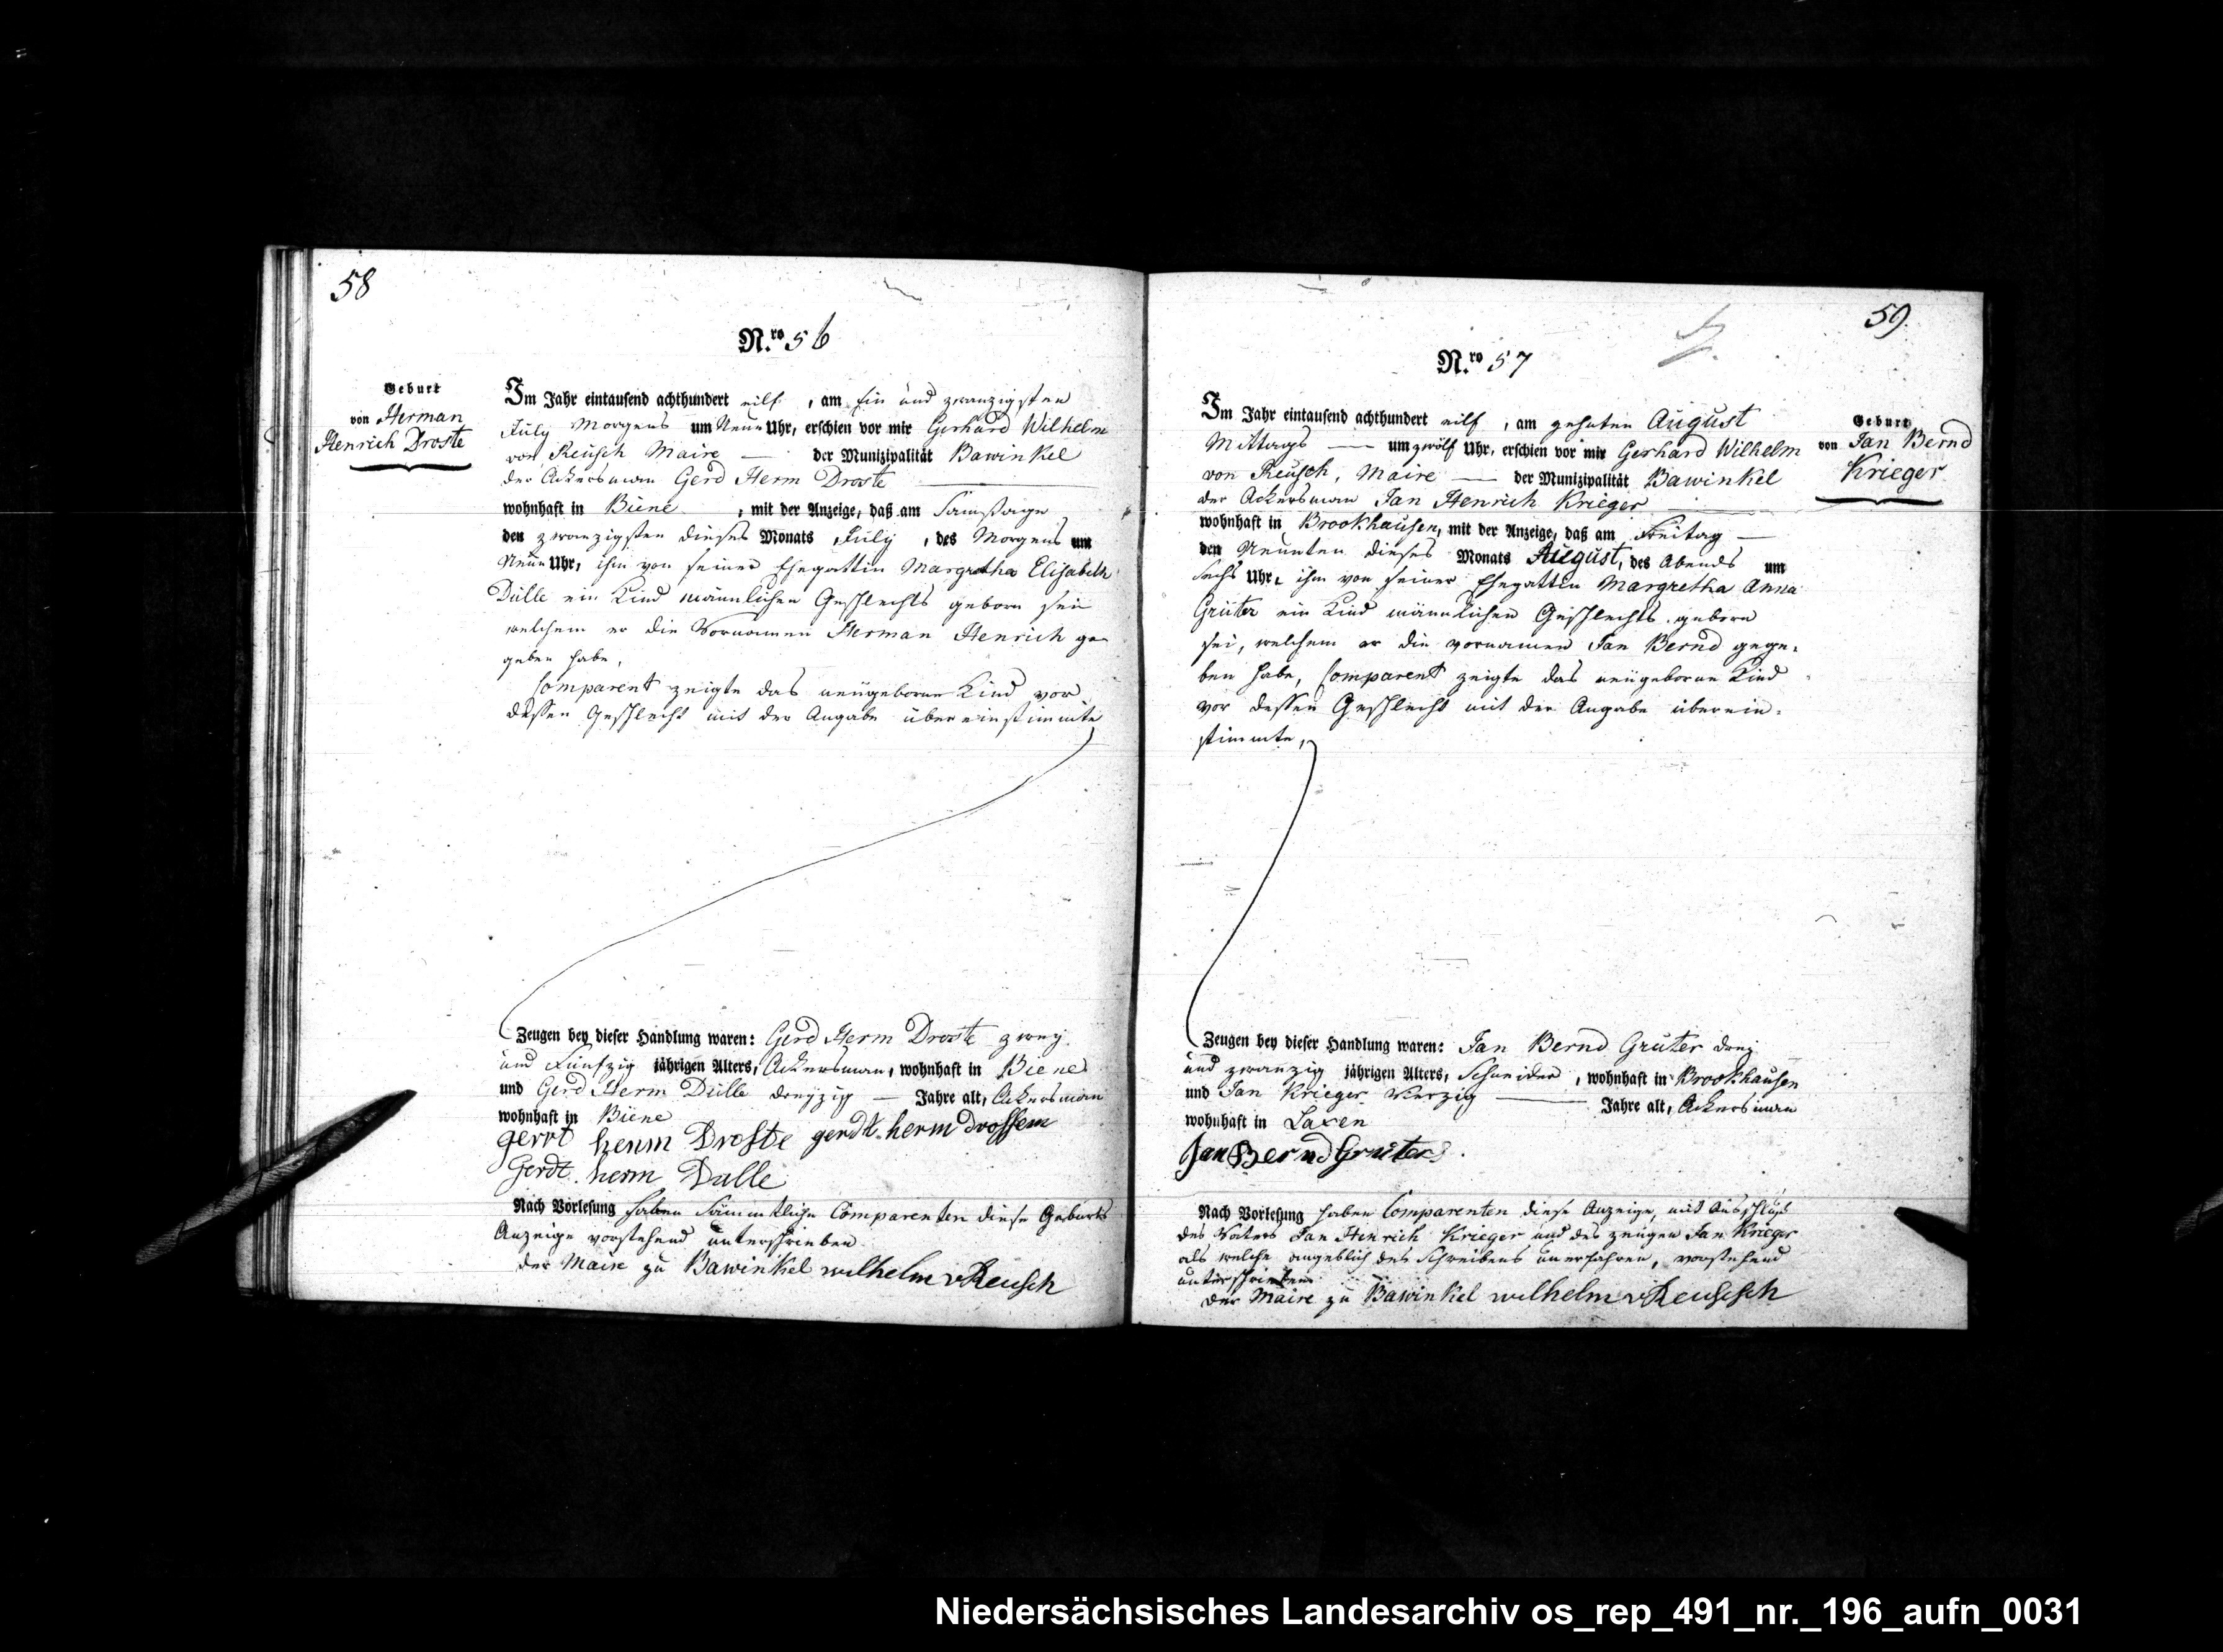 58
N.ro 56
Geburt
von Herman
Henrich Droste
Im Jahr eintausend achthundert eilf, am Ein und zwanzigsten
July Morgens um Neun Uhr, erschien vor mir Gerhard Wilhelm
von Reusch Maire — der Munizipalität Bawinkel
der Ackersman Gerd Herm Droste
wohnhaft in Biene, mit der Anzeige, daß am Samstage
den zwanzigsten dieses Monats July, des Morgens um
Neun Uhr, ihm von seiner Ehegattin Margretha Elisabeth
Dülle ein Kind männlichen Geschlechts geborn sei
welchem er die Vornamen Herman Henrich ge
geben habe,
Comparent zeigte das neugeborne Kind vor
dessen Geschlecht mit der Angabe übereinstimmte
Zeugen bey dieser Handlung waren: Gerd Herm Droste zwey
und Fünfzig jährigen Alters, Ackersman, wohnhaft in Biene
und Gerd Herm Dülle dreyzig — Jahre alt, Ackersman
wohnhaft in Biene
gerrt herm Droste gerdt herm drossem
Gerdt herm Dulle
Nach Vorlesung haben Sämmtliche Comparenten diese Geburts
Anzeige vorstehend unterschrieben
der Maire zu Bawinkel wilhelm v Reusch
59.
N.ro 57
Geburt
von Jan Bernd
Krieger
Im Jahr eintausend achthundert eilf, am zehnten August
Mittags — um zwölf Uhr, erschien vor mir Gerhard Wilhelm
von Reusch, Maire — der Munizipalität Bawinkel
der Ackersman Jan Henrich Krieger
wohnhaft in Brookhausen, mit der Anzeige, daß am Freitag —
den Neunten dieses Monats August, des Abends um
sechs Uhr, ihm von seiner Ehegattin Margretha Anna
Grüter ein Kind männlichen Geschlechts geborn
sei, welchem er die vornamen Jan Bernd gege-
ben habe, Comparent zeigte das neugeborne Kind
vor dessen Geschlecht mit der Angabe überein-
stimmte,
Zeugen bey dieser Handlung waren: Jan Bernd Grüter drei
und zwanzig jährigen Alters, Schneider, wohnhaft in Brookhausen
und Jan Krieger Vierzig — Jahre alt, Ackersman
wohnhaft in Laxen
Jan Bernd Grüter
Nach Vorlesung haben Comparenten diese Anzeige, mit Ausschluß
des Vaters Jan Hinrich Krieger und des zeugen Jan Krieger
als welche angeblich des Schreibens unerfahren, vorstehend
unterschrieben
der Maire zu Bawinkel wilhelm v Reusch
Niedersächsisches Landesarchiv os_rep_491_nr._196_aufn_0031